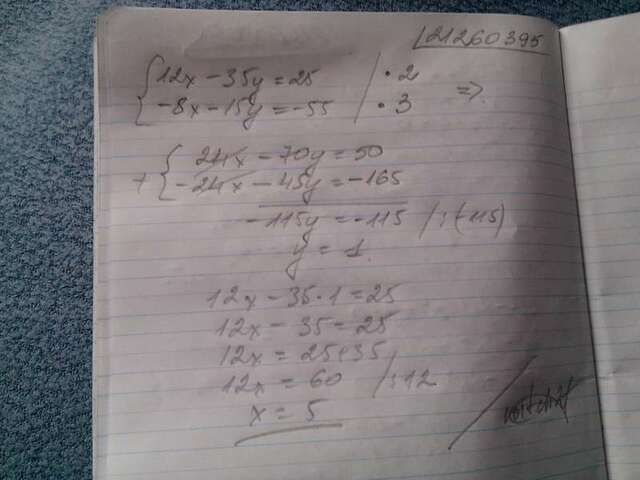 21260395
12x - 35y = 25 / · 2
-8x - 15y = -55 / · 3 =>
+ 24x - 70y = 50
-24x - 45y = -165
-115y = -115 / :(-115)
y = 1
12x - 35·1 = 25
12x - 35 = 25
12x = 25+35
12x = 60 / :12
x = 5